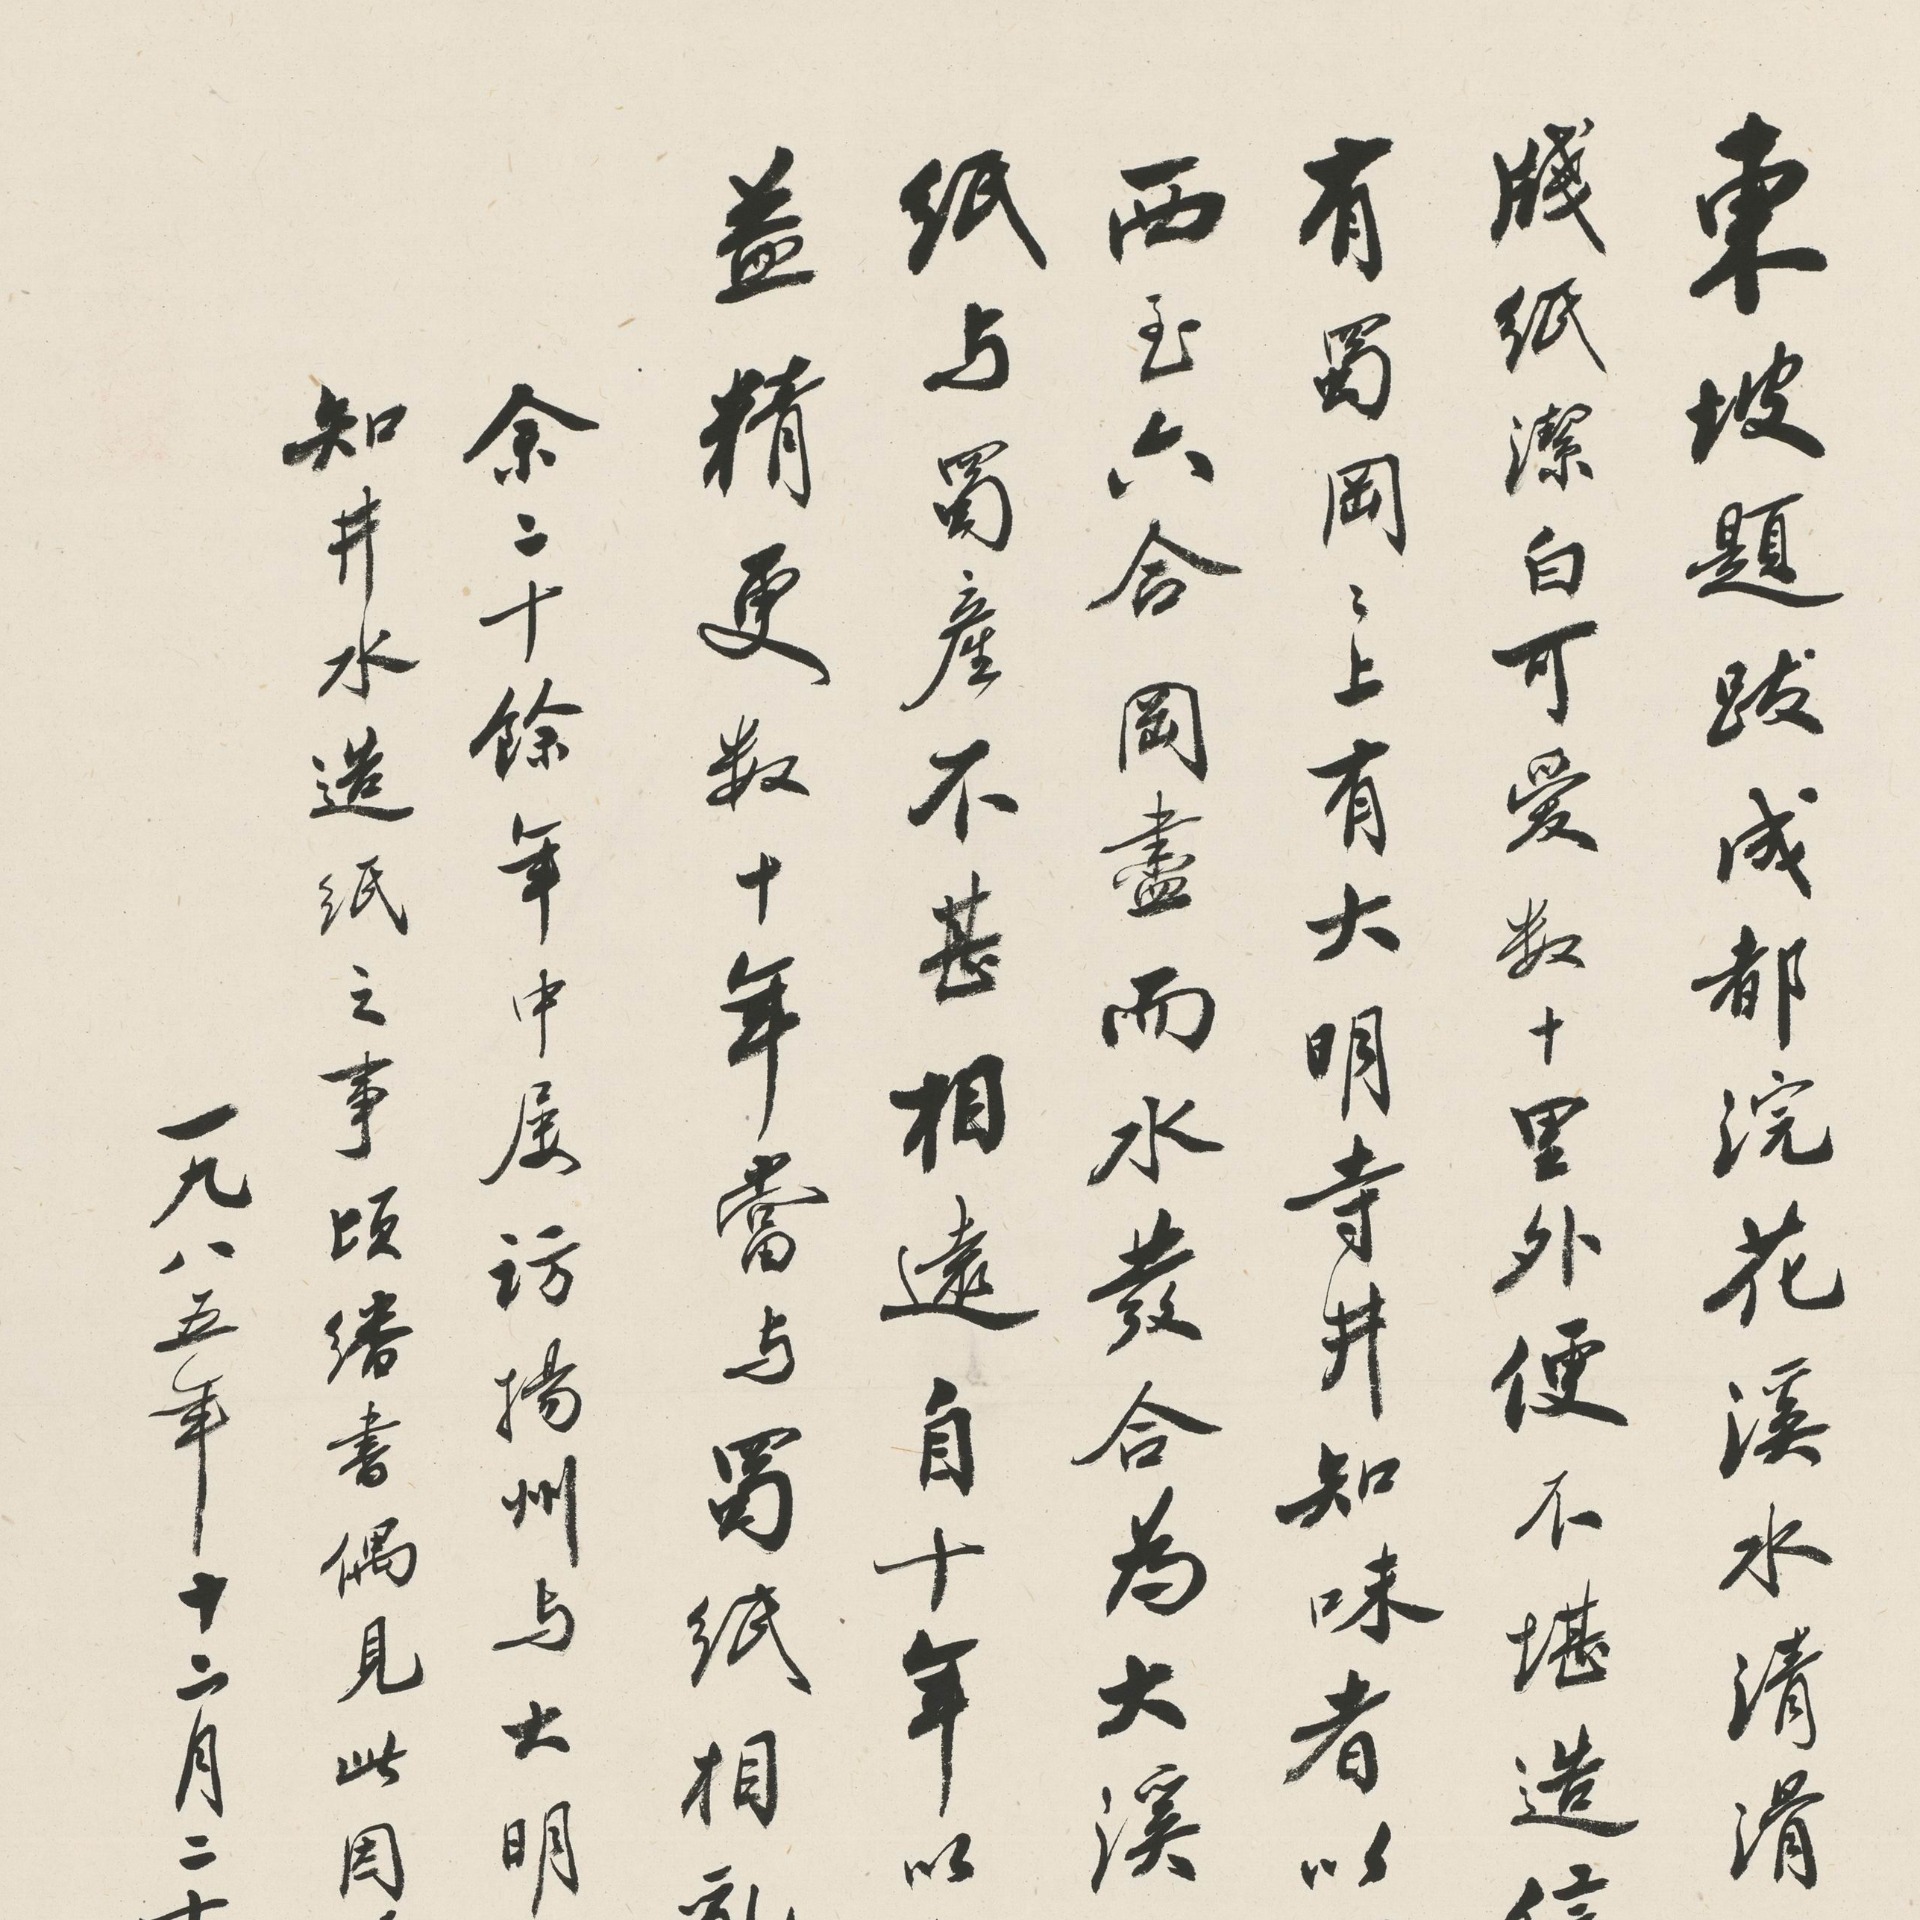 東坡題跋成都浣花溪水清滑
牋紙潔白可愛数十里外便不堪造信
有蜀岡〻上有大明寺井知味者以
西至六合岡盡而水發合為大溪
紙与蜀産不甚相遠自十年以
益精更数十年當与蜀紙相亂
余二十餘年中屡訪揚州与大明
知井水造紙之事頃繙書偶見此因
一九八五年十二月二十